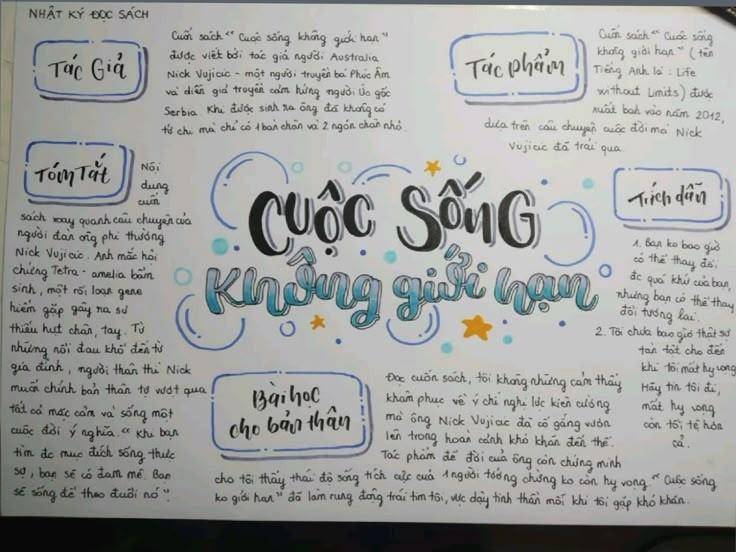 NHẬT KÝ ĐỌC SÁCH
Tác Giả
Cuốn sách "Cuộc sống không giới hạn"
được viết bởi tác giả người Australia
Nick Vujicic - một người truyền bá Phúc Âm
và diễn giả truyền cảm hứng người Úc gốc
Serbia. Khi được sinh ra ông đã không có
tứ chi mà chỉ có 1 bàn chân và 2 ngón chân nhỏ.
Tác phẩm
Cuốn sách "Cuộc sống
không giới hạn" (tên
Tiếng Anh là: Life
without Limits) được
xuất bản vào năm 2012,
dựa trên câu chuyện cuộc đời mà Nick
Vujicic đã trải qua.
Tóm Tắt
Nội
dung
cuốn
sách xoay quanh câu chuyện của
người đàn ông phi thường
Nick Vujicic. Anh mắc hội
chứng Tetra-amelia bẩm
sinh, một rối loạn gene
hiếm gặp gây ra sự
thiếu hụt chân, tay. Từ
những nỗi đau khổ đến từ
gia đình, người thân thì Nick
muốn chính bản thân tự vượt qua
tất cả mặc cảm và sống một
cuộc đời ý nghĩa. "Khi bạn
tìm đc mục đích sống thực
sự, bạn sẽ có đam mê. Bạn
sẽ sống để theo đuổi nó".
CUỘC SỐNG
Không giới hạn
Trích dẫn
1. Bạn ko bao giờ
có thể thay đổi
đc quá khứ của bạn,
nhưng bạn có thể thay
đổi tương lai.
2. Tôi chưa bao giờ thật sự
tàn tật cho đến
khi tôi mất hy vọng
Hãy tin tôi đi,
mất hy vọng
còn tồi tệ hơn
cả.
Bài học
cho bản thân
Đọc cuốn sách, tôi không những cảm thấy
khâm phục về ý chí nghị lực kiên cường
mà ông Nick Vujicic đã cố gắng vươn
lên trong hoàn cảnh khó khăn đến thế.
Tác phẩm để đời của ông còn chứng minh
cho tôi thấy thái độ sống tích cực của 1 người tưởng chừng ko còn hy vọng. "Cuộc sống
ko giới hạn" đã làm rung động trái tim tôi, vực dậy tinh thần mỗi khi tôi gặp khó khăn.